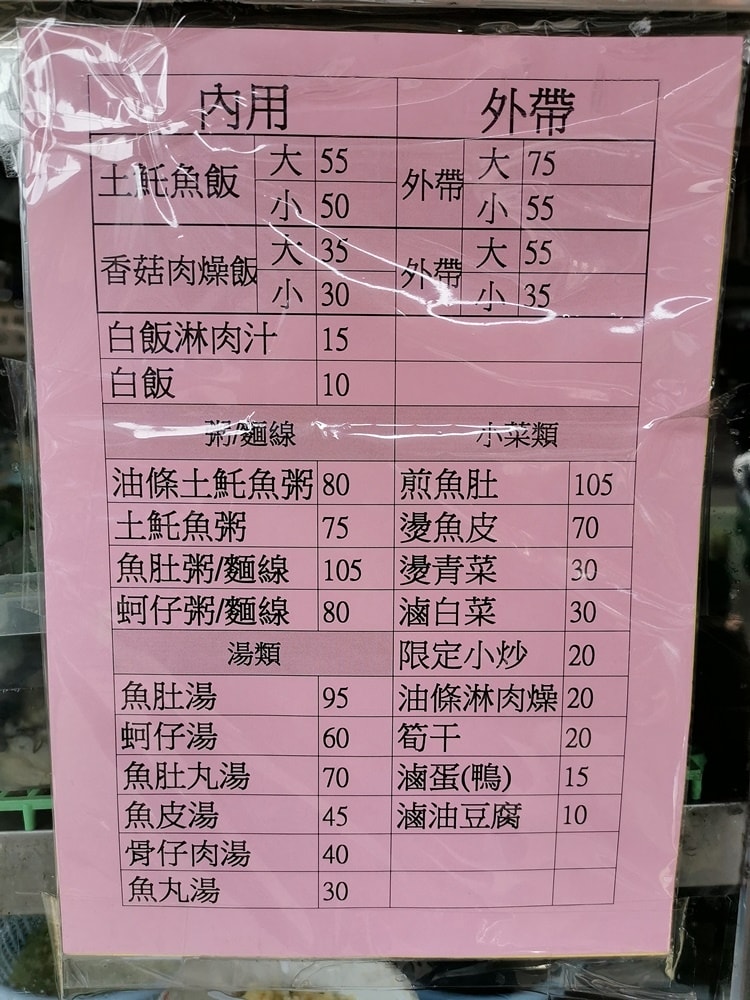 內用 外帶
土魠魚飯 大 55 外帶 大 75
小 50 小 55
香菇肉燥飯 大 35 外帶 大 55
小 30 小 35
白飯淋肉汁 15
白飯 10
粥/麵線 小菜類
油條土魠魚粥 80 煎魚肚 105
土魠魚粥 75 燙魚皮 70
魚肚粥/麵線 105 燙青菜 30
蚵仔粥/麵線 80 滷白菜 30
湯類 限定小炒 20
魚肚湯 95 油條淋肉燥 20
蚵仔湯 60 筍干 20
魚肚丸湯 70 滷蛋(鴨) 15
魚皮湯 45 滷油豆腐 10
骨仔肉湯 40
魚丸湯 30